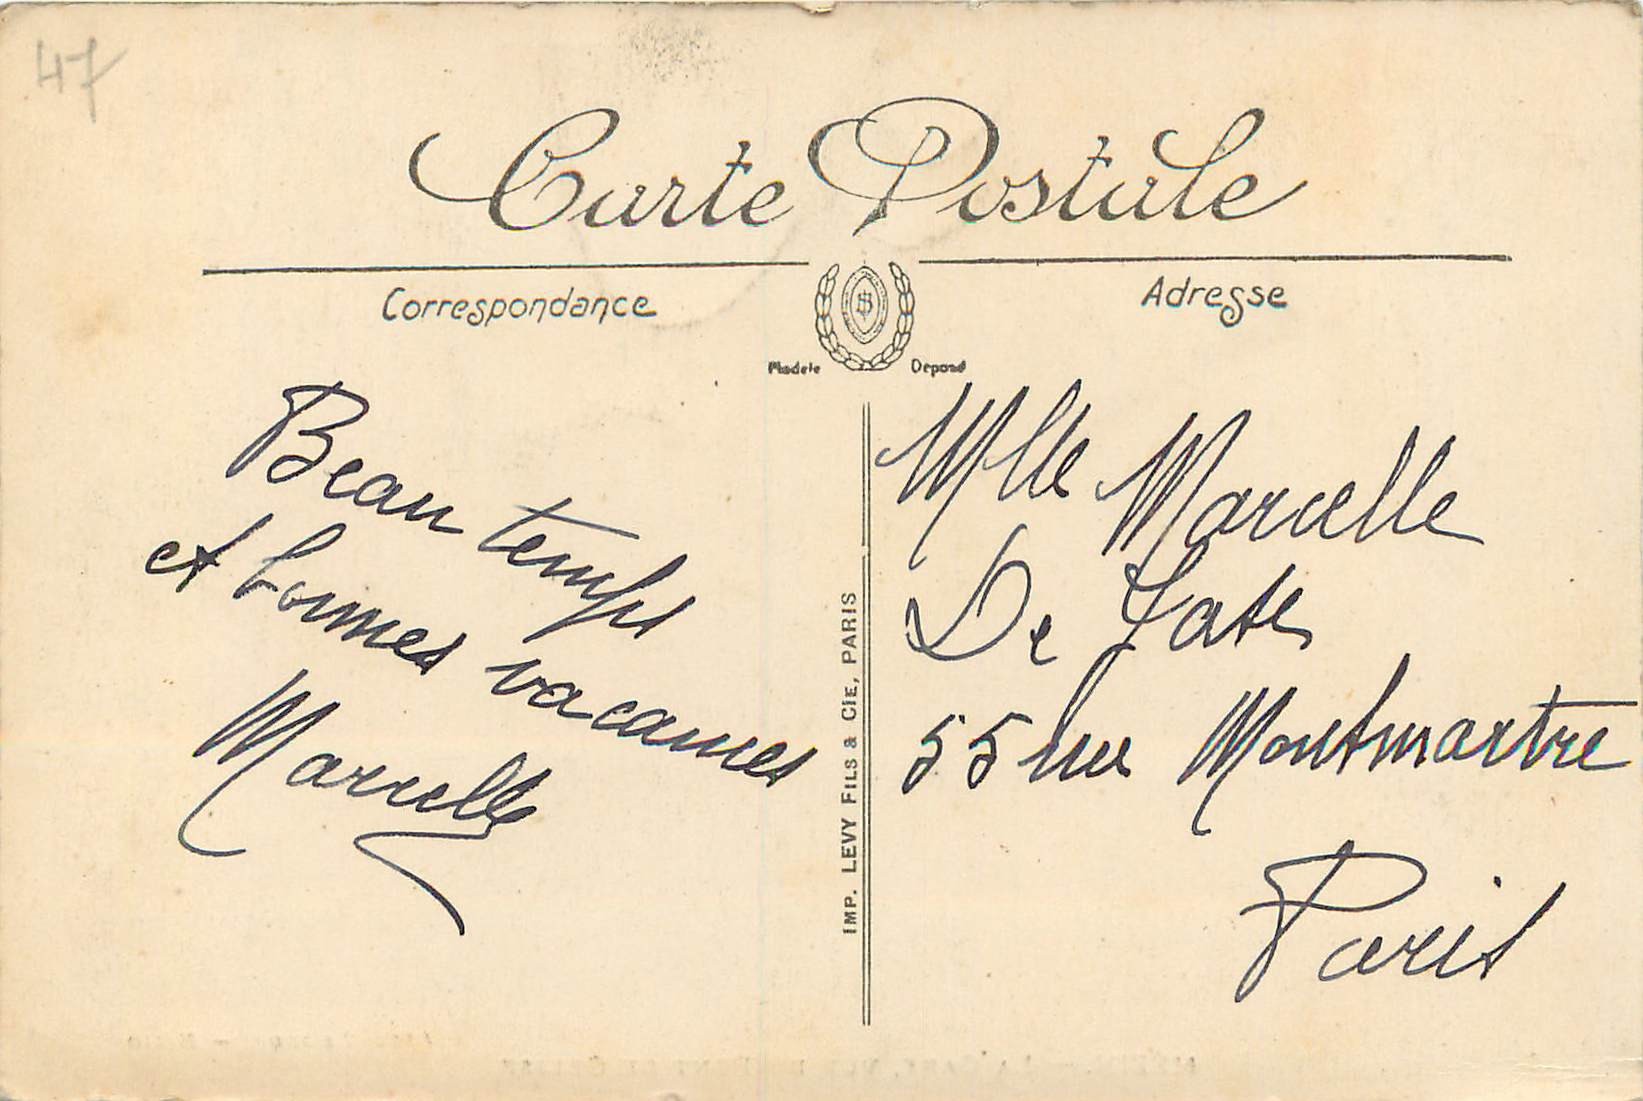 47
Carte Postale
Correspondance
Adresse
Modele Deposé
Beau temps
et bonnes vacances
Marcelle
IMP. LEVY FILS & CIE, PARIS
Mlle Marcelle
De
55 Rue Montmartre
Paris